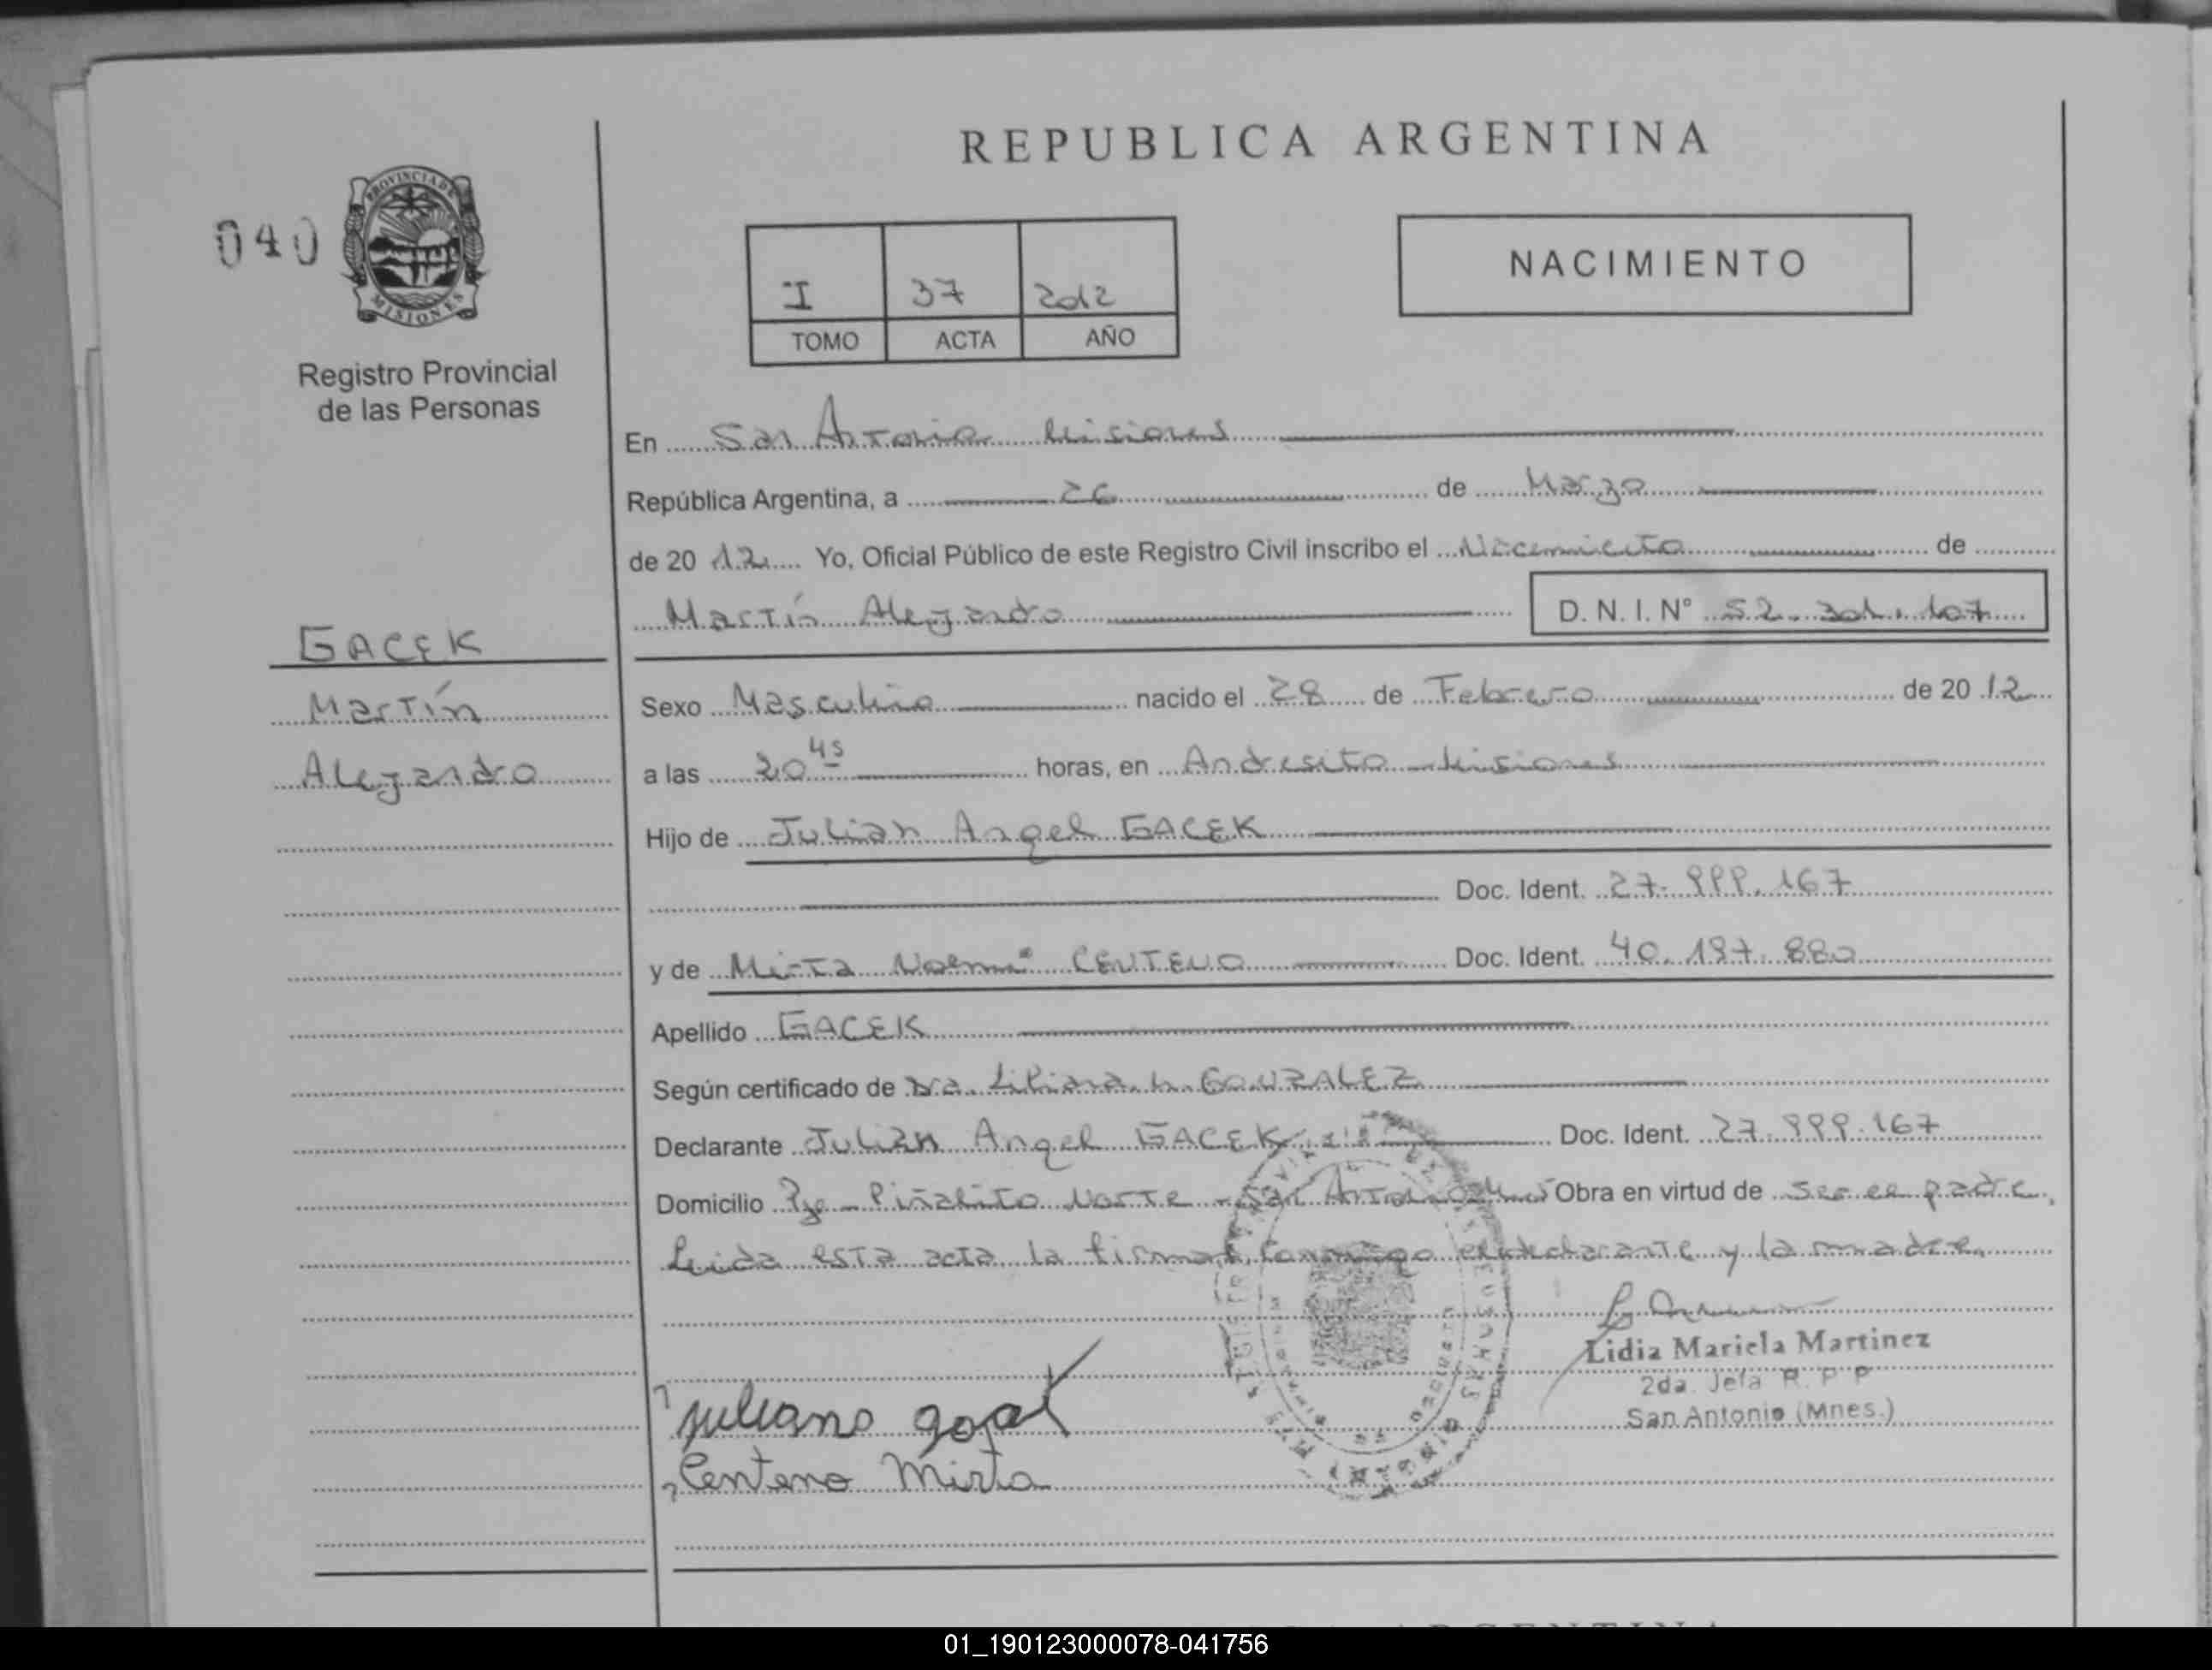 REPUBLICA ARGENTINA
040
PROVINCIA DE
MISIONES
Registro Provincial
de las Personas
I 37 2012
TOMO ACTA AÑO
NACIMIENTO
En San Antonio Misiones
República Argentina, a 26 de Marzo
de 20 12 Yo, Oficial Público de este Registro Civil inscribo el Nacimiento de
Martín Alejandro D. N. I. N° 52.301.107
GACEK
Martín
Alejandro
Sexo Masculino nacido el 28 de Febrero de 20 12
a las 20 45 horas, en Andresito Misiones
Hijo de Julián Angel GACEK
Doc. Ident. 27.999.167
y de Mirta Noemí CENTENO Doc. Ident. 40.197.880
Apellido GACEK
Según certificado de Dra. Liliana GONZALEZ
Declarante Julián Angel GACEK Doc. Ident. 27.999.167
Domicilio Pje - Piñalito Norte - San Antonio Obra en virtud de ser el padre,
Leida esta acta la firman conmigo el declarante y la madre.
Lidia Mariela Martinez
2da. Jefa R. P P
San Antonio (Mnes.)
Centeno Mirta
01_190123000078-041756